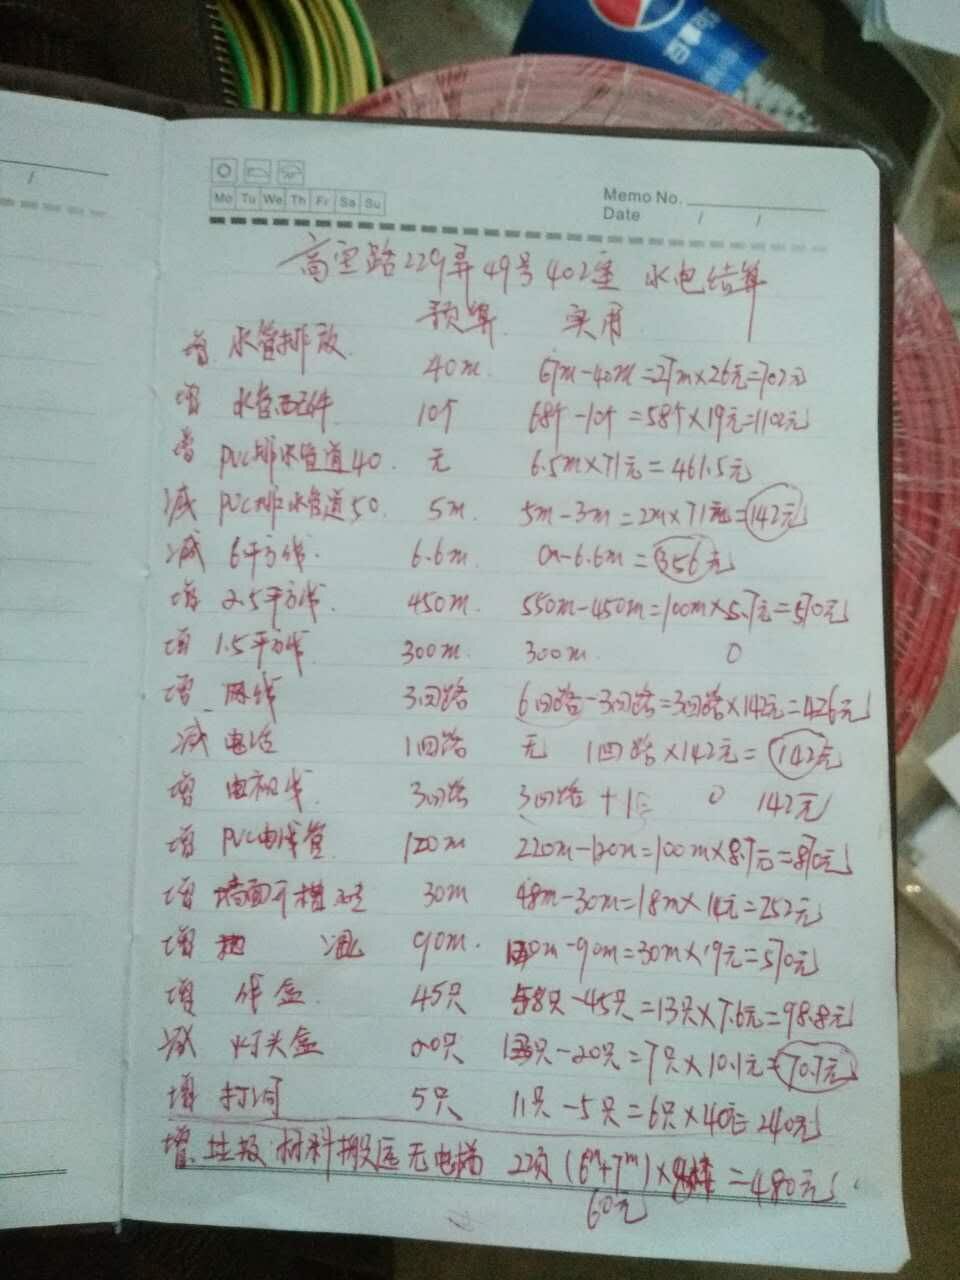 Mo Tu We Th Fr Sa Su
Memo No.
Date / /
高宝路229弄49号402室 水电结算
预算 实用
增 水管排放 40m 67m-40m=27m×26元=702元
增 水管配件 10个 68个-10个=58个×19元=1102元
增 PVC排水管道40 无 6.5m×71元=461.5元
减 PVC排水管道50 5m 5m-3m=2m×71元=142元
减 6平方线 6.6m 0m-6.6m=356元
增 2.5平方线 450m 550m-450m=100m×5.7元=570元
增 1.5平方线 300m 300m 0
增 网线 3回路 6回路-3回路=3回路×142元=426元
减 电话 1回路 无 1回路×142元=142元
增 电视线 3回路 3回路+1 0 142元
增 PVC电线管 120m 220m-120m=100m×8.7元=870元
增 墙面开槽 30m 48m-30m=18m×14元=252元
增 地 90m 120m-90m=30m×19元=570元
增 盒 45只 58只-45只=13只×7.6元=98.8元
减 灯头盒 20只 13只-20只=7只×10.1元=70.7元
增 打洞 5只 11只-5只=6只×40元=240元
增 垃圾材料搬运无电梯 2项(6m+7m)× =480元
60元